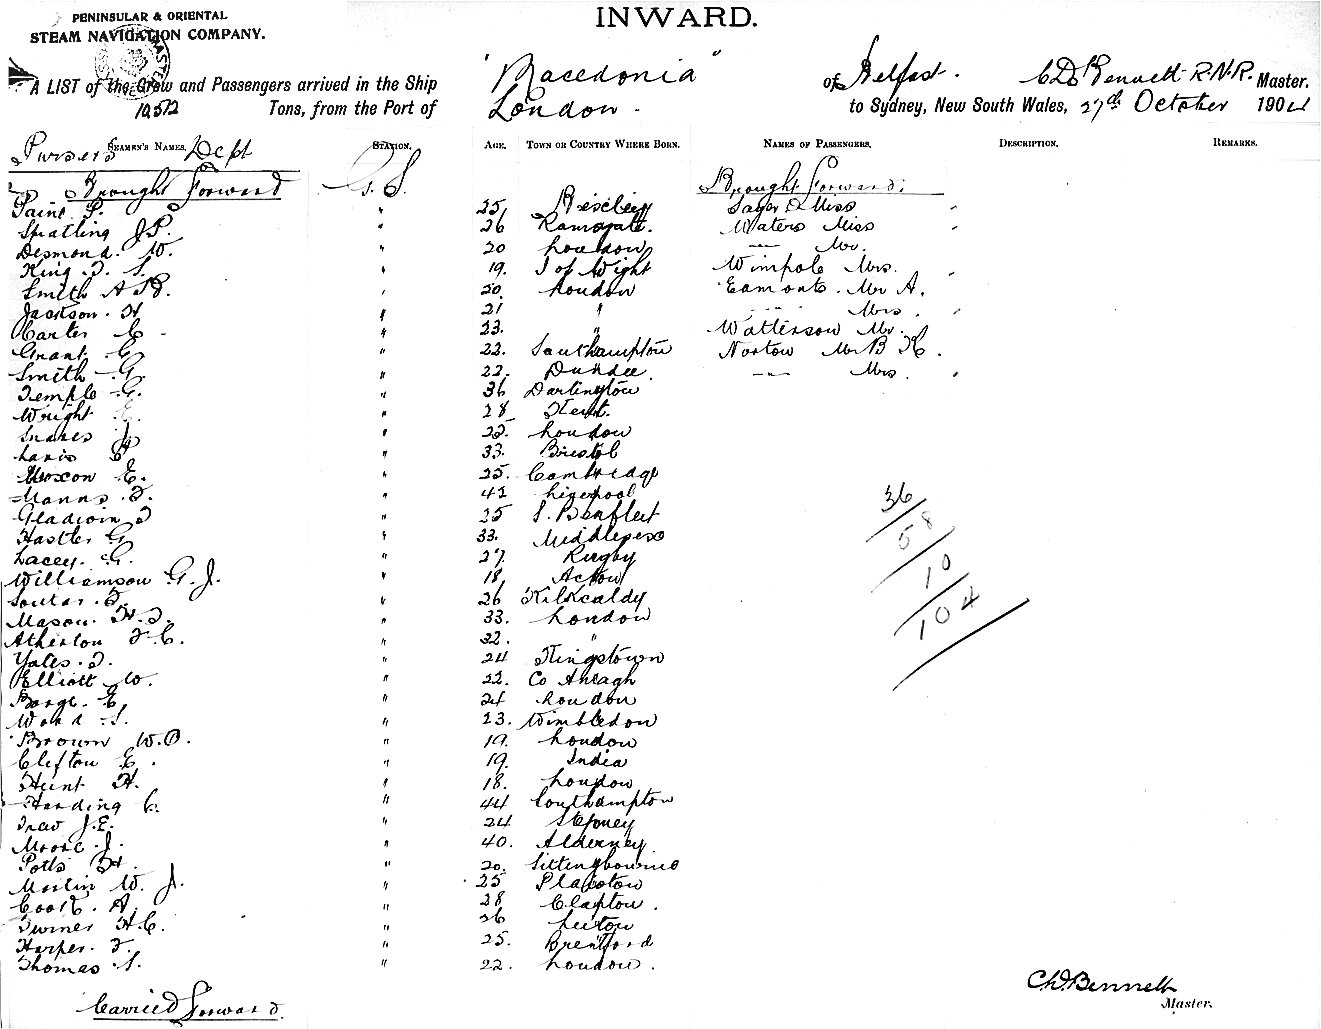 PENINSULAR & ORIENTAL
STEAM NAVIGATION COMPANY.
INWARD.
A LIST of the Crew and Passengers arrived in the Ship "Macedonia" of Belfast. C D Bennett R.N.R. Master.
10,512 Tons, from the Port of London. to Sydney, New South Wales, 27th October 1904
SEAMEN'S NAMES. STATION. AGE. TOWN OR COUNTRY WHERE BORN. NAMES OF PASSENGERS. DESCRIPTION. REMARKS.
Pursers Dept
Brought Forward G. S. Brought Forward.
Paine 25 Miss
Spratling J.P. " 26 Ramsgate. Waters Miss
Desmond. W. " 20 London — Mr.
King. F. S. " 19. I of Wight Wimpole Mrs.
Smith A " 20. London Mr A.
Jackson. H " 21 " Mrs.
Carter C " 23. " Watterson Mr.
Grant. C " 22. Southampton Norton Mr B K.
Smith. G. " 22. Dundee. — Mrs.
Temple. G. " 36 Darlington
Wright E. " 28 Kent.
Snares J. " 22. London
" 33. Bristol
Moxon E. " 25. Cambridge
Manns. F. " 42 Liverpool
Gladwin F " 25 S. Benfleet
Hastler G " 33. Middlesex
Lacey. G. " 27 Rugby
Williamson G. J. " 18 Acton
Soutar. F. " 26 Kilkcaldy
Mason. H. F. " 33. London
Atherton F. C. " 22. "
Yates. F. " 24 Kingstown
Elliott W. " 22. Co Armagh
Barge. E " 24 London
Ward. S. " 23. Wimbledon
Brown W.O. " 19. London
Clifton E. " 19. India
Hunt H. " 18. London
Harding C. " 44 Southampton
J.E. " 24 Stepney
Moore. J. " 40. Alderney.
Potts H. " 20. Sittingbourne
Martin W. J. " 25 Plaistow
Cook. A. " 28 Clapton.
Turner H.C. " 26 Luton
Harper. F. " 25. Brentford
Thomas S. " 22. London.
36
58
10
104
Carried Forward.
C D Bennett
Master.